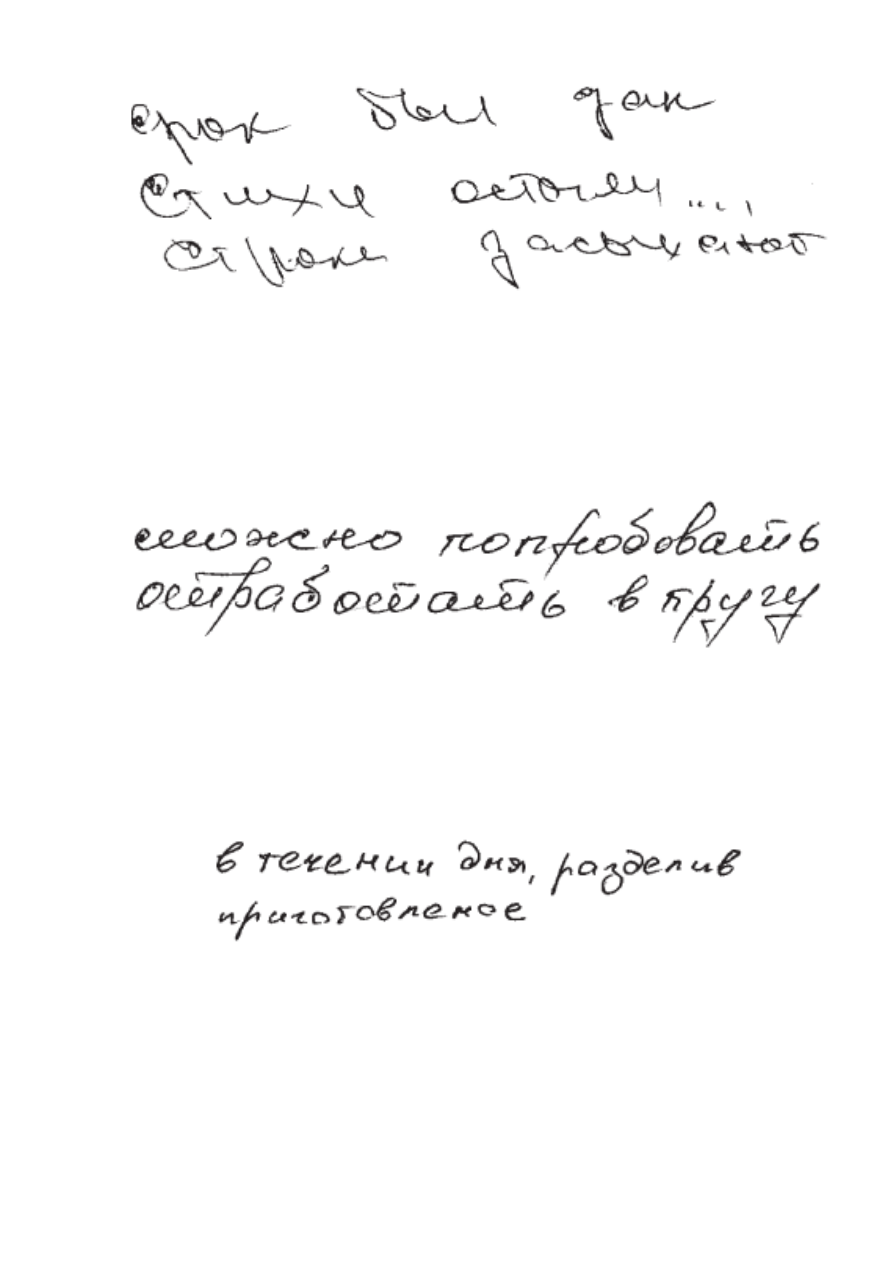 срок был дан
Стихи
строки засыхают
можно попробовать
отработать в
в течении дня, разделив
приготовленое